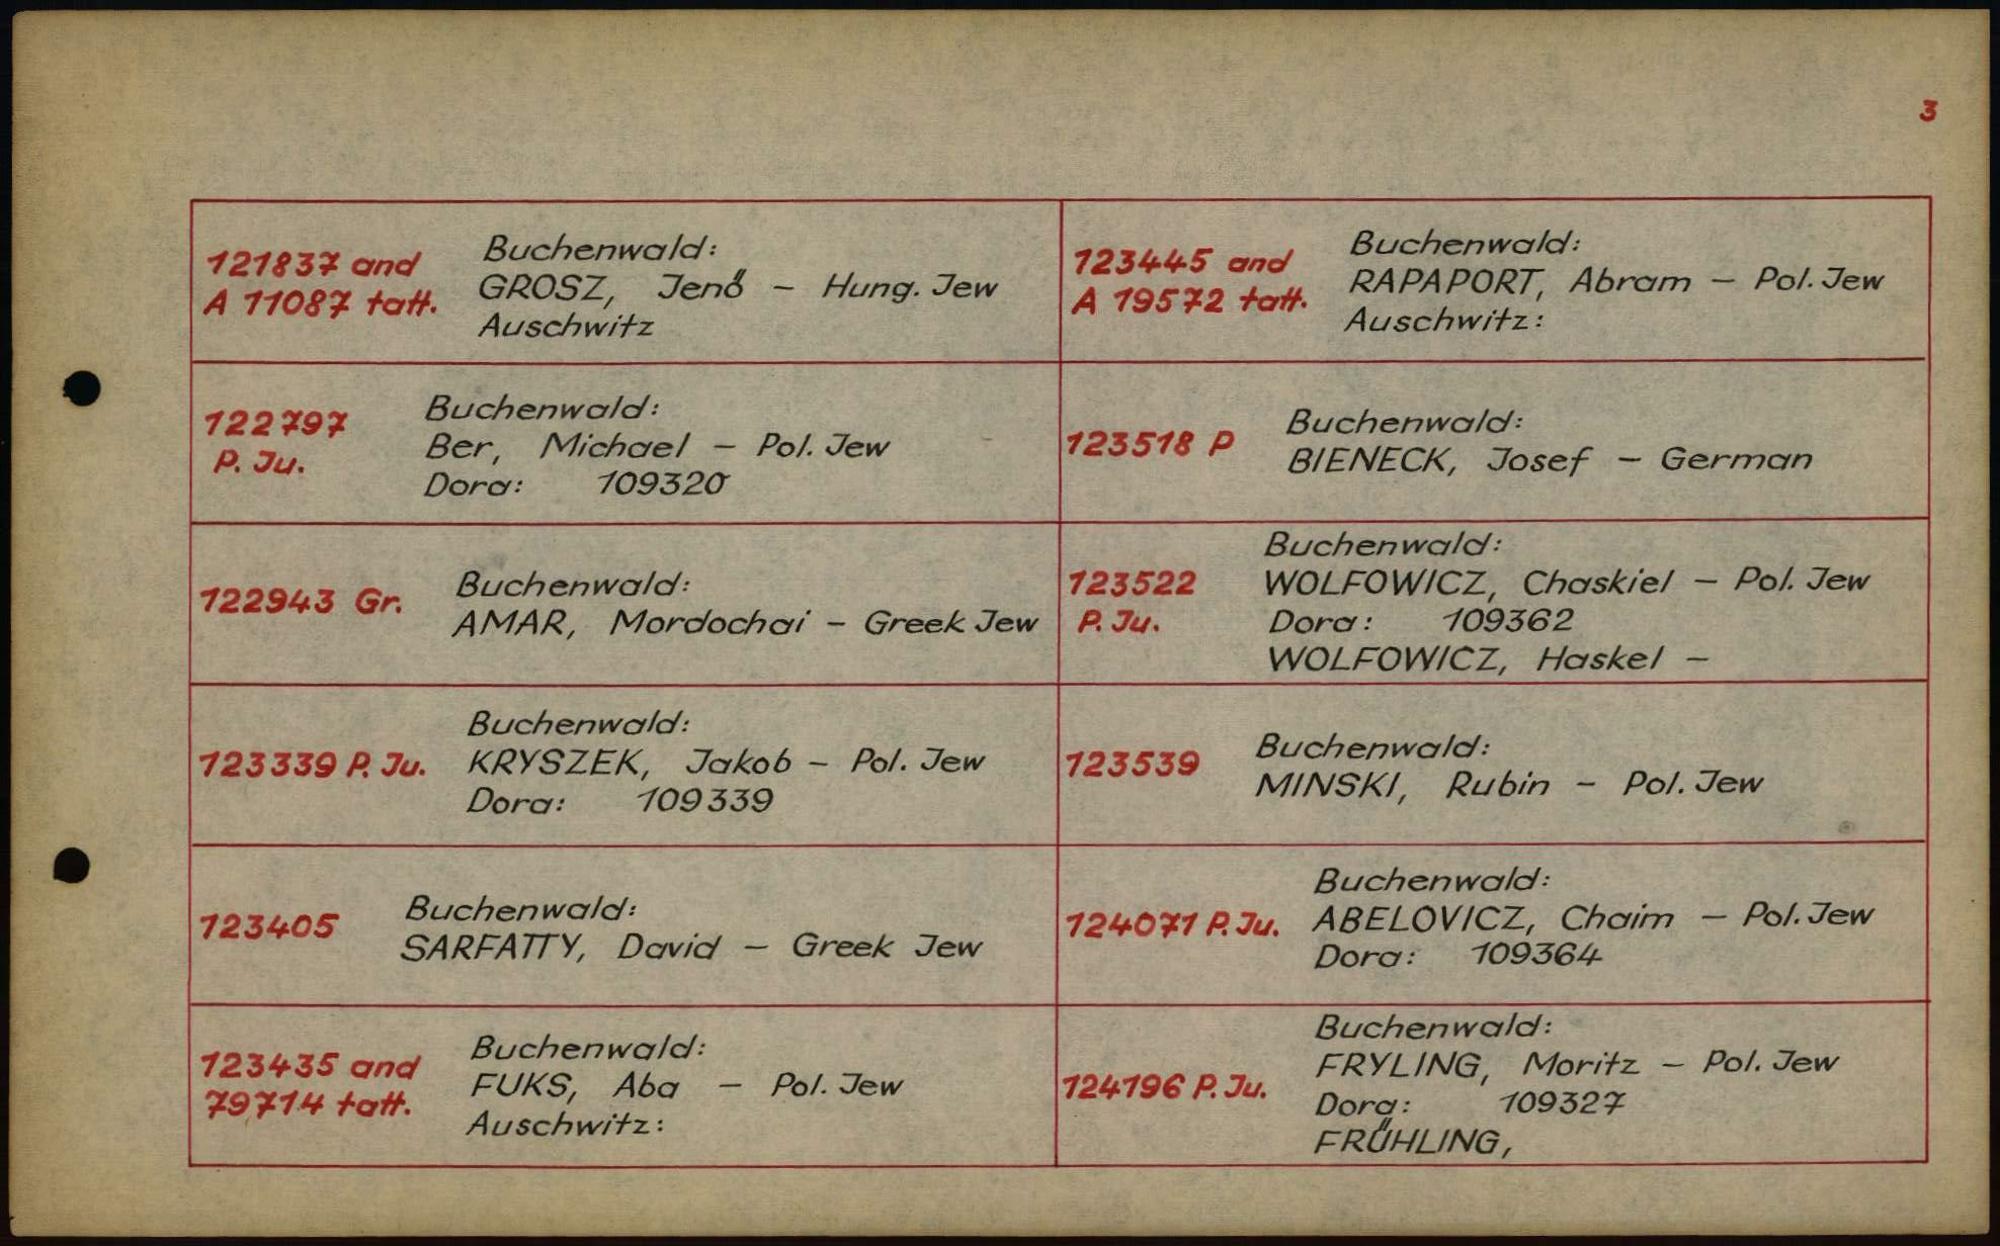 3
121837 and
A 11087 tatt.
Buchenwald:
GROSZ, Jenő – Hung. Jew
Auschwitz
122797
P. Ju.
Buchenwald:
Ber, Michael – Pol. Jew
Dora: 109320
122943 Gr.
Buchenwald:
AMAR, Mordochai – Greek Jew
123339 P. Ju.
Buchenwald:
KRYSZEK, Jakob – Pol. Jew
Dora: 109339
123405
Buchenwald:
SARFATTY, David – Greek Jew
123435 and
79714 tatt.
Buchenwald:
FUKS, Aba – Pol. Jew
Auschwitz:
123445 and
A 19572 tatt.
Buchenwald:
RAPAPORT, Abram – Pol. Jew
Auschwitz:
123518 P
Buchenwald:
BIENECK, Josef – German
123522
P. Ju.
Buchenwald:
WOLFOWICZ, Chaskiel – Pol. Jew
Dora: 109362
WOLFOWICZ, Haskel –
123539
Buchenwald:
MINSKI, Rubin – Pol. Jew
124071 P. Ju.
Buchenwald:
ABELOVICZ, Chaim – Pol. Jew
Dora: 109364
124196 P. Ju.
Buchenwald:
FRYLING, Moritz – Pol. Jew
Dora: 109327
FRÜHLING,